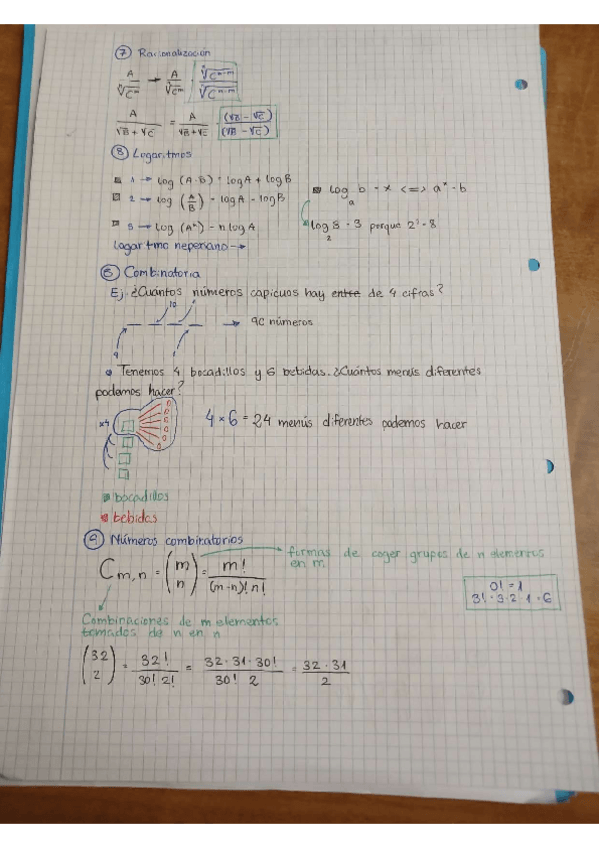 ⑦ Racionalización
A/ⁿ√Cᵐ → A/ⁿ√Cᵐ · ⁿ√Cⁿ⁻ᵐ/ⁿ√Cⁿ⁻ᵐ
A/(√B + √C) = A/(√B + √C) · (√B − √C)/(√B − √C)
⑧ Logaritmos
1 → log (A·B) = log A + log B
2 → log (A/B) = log A - log B
3 → log (Aⁿ) = n log A
Logaritmo neperiano →
logₐ b = x <=> aˣ = b
log₂ 8 = 3 porque 2³ = 8
Combinatoria
Ej: ¿Cuántos números capicuos hay entre de 4 cifras?
10
→ 90 números
9
Tenemos 4 bocadillos y 6 bebidas. ¿Cuántos menús diferentes
podemos hacer?
x4
4 x 6 = 24 menús diferentes podemos hacer
bocadillos
bebidas
⑨ Números combinatorios
Cm,n = (m n) = m!/(m-n)! n!
formas de coger grupos de n elementos
en m
0! = 1
3! = 3·2·1 = 6
Combinaciones de m elementos
tomados de n en n
(32 2) = 32!/30! 2! = 32·31·30!/30! 2 = 32·31/2